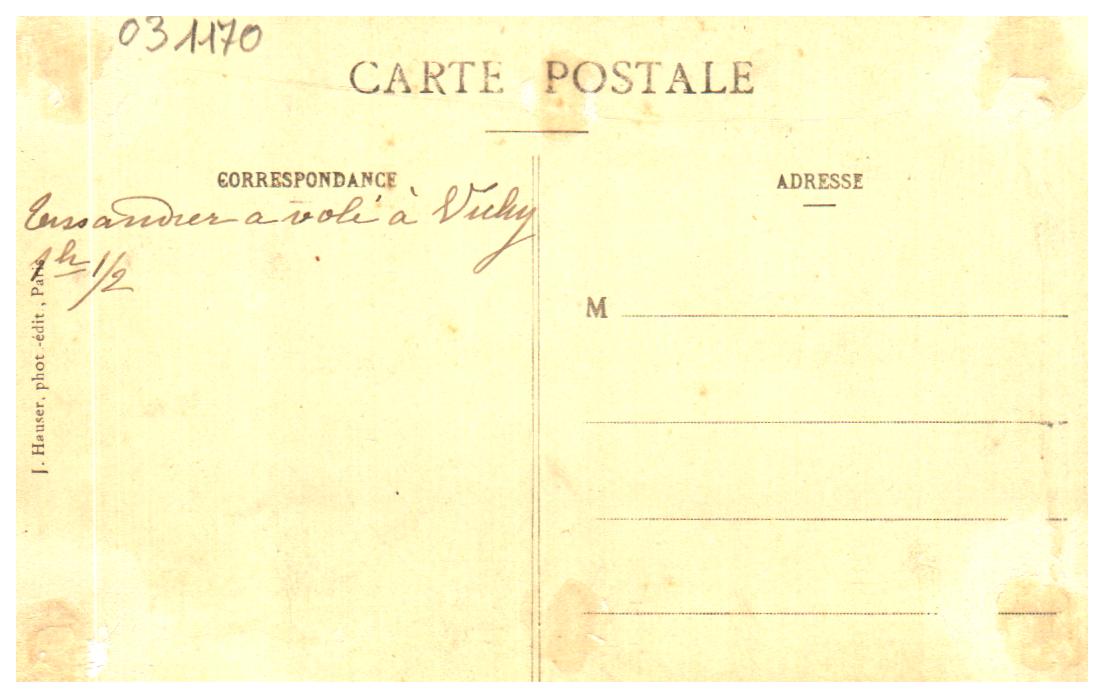 031170
CARTE POSTALE
CORRESPONDANCE
Tessandier a volé à Vichy
1h 1/2
J. Hauser, phot.-édit., Paris
ADRESSE
M